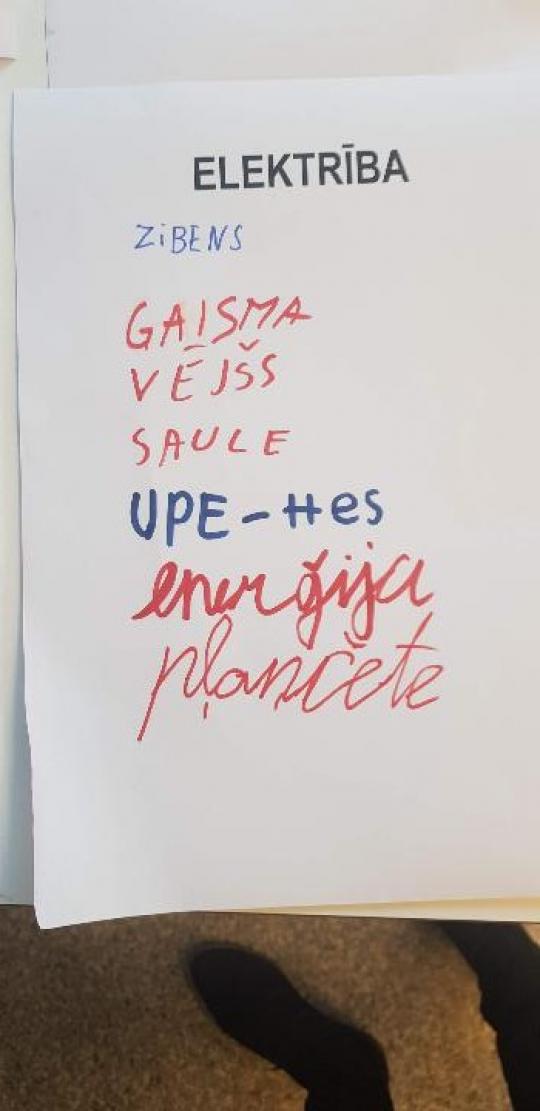 ELEKTRĪBA
ZiBENS
GAISMA
VĒJŠS
SAULE
UPE-HES
enerģija
plančete